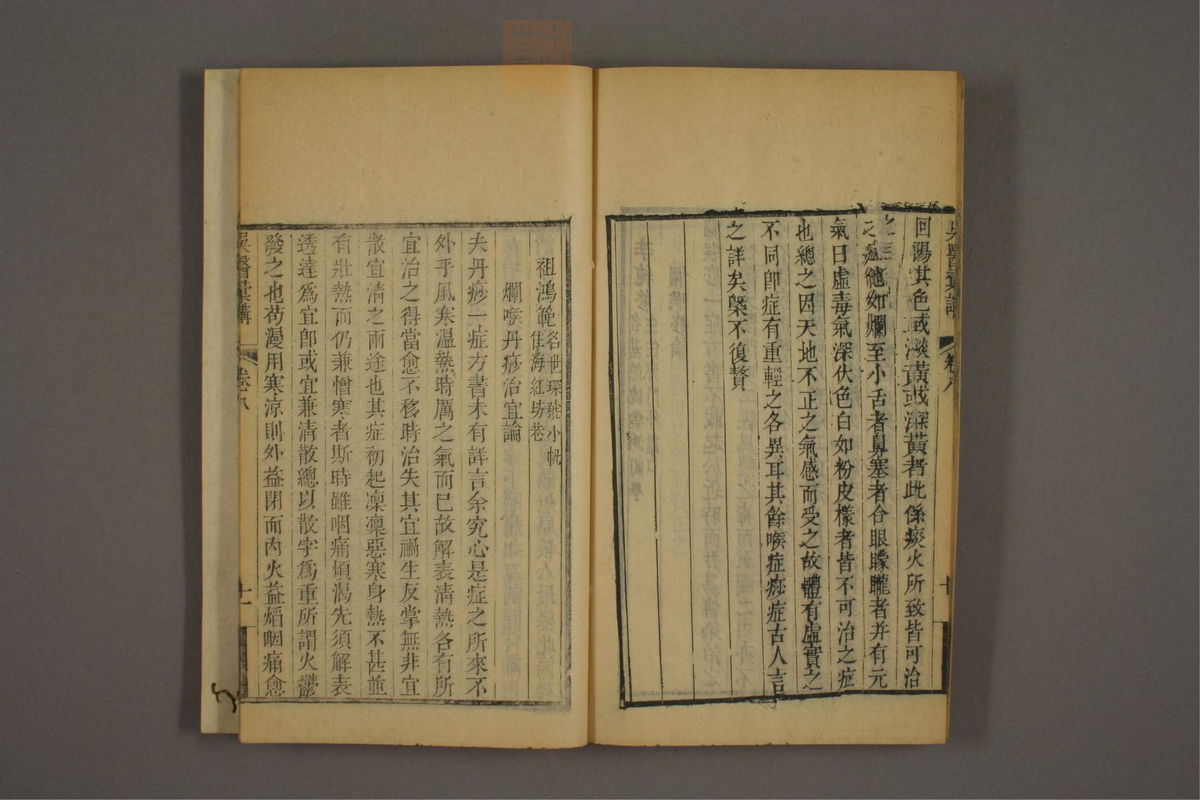 吳醫彙講 卷八 十
回陽其色或淡黃或深黃者此係痰火所致皆可治
之症他如爛至小舌者鼻塞者合眼矇矓者并有元
氣日虛毒氣深伏色白如粉皮樣者皆不可治之症
也總之因天地不正之氣感而受之故體有虛實之
不同卽症有重輕之各異耳其餘喉症痧症古人言
之詳矣槩不復贅
祖鴻範名世琛號小帆
住海紅坊巷
爛喉丹痧治宜論
夫丹痧一症方書未有詳言余究心是症之所來不
外乎風寒溫熱時厲之氣而已故解表淸熱各有所
宜治之得當愈不移時治失其宜禍生反掌無非宜
散宜清之兩途也其症初起凜凜惡寒身熱不甚並
有壯熱而仍兼憎寒者斯時雖咽痛煩渴先須解表
透達爲宜卽或宜兼清散總以散字爲重所謂火鬱
發之也苟漫用寒涼則外益閉而內火益熖咽痛愈
吳醫彙講 卷八 十一